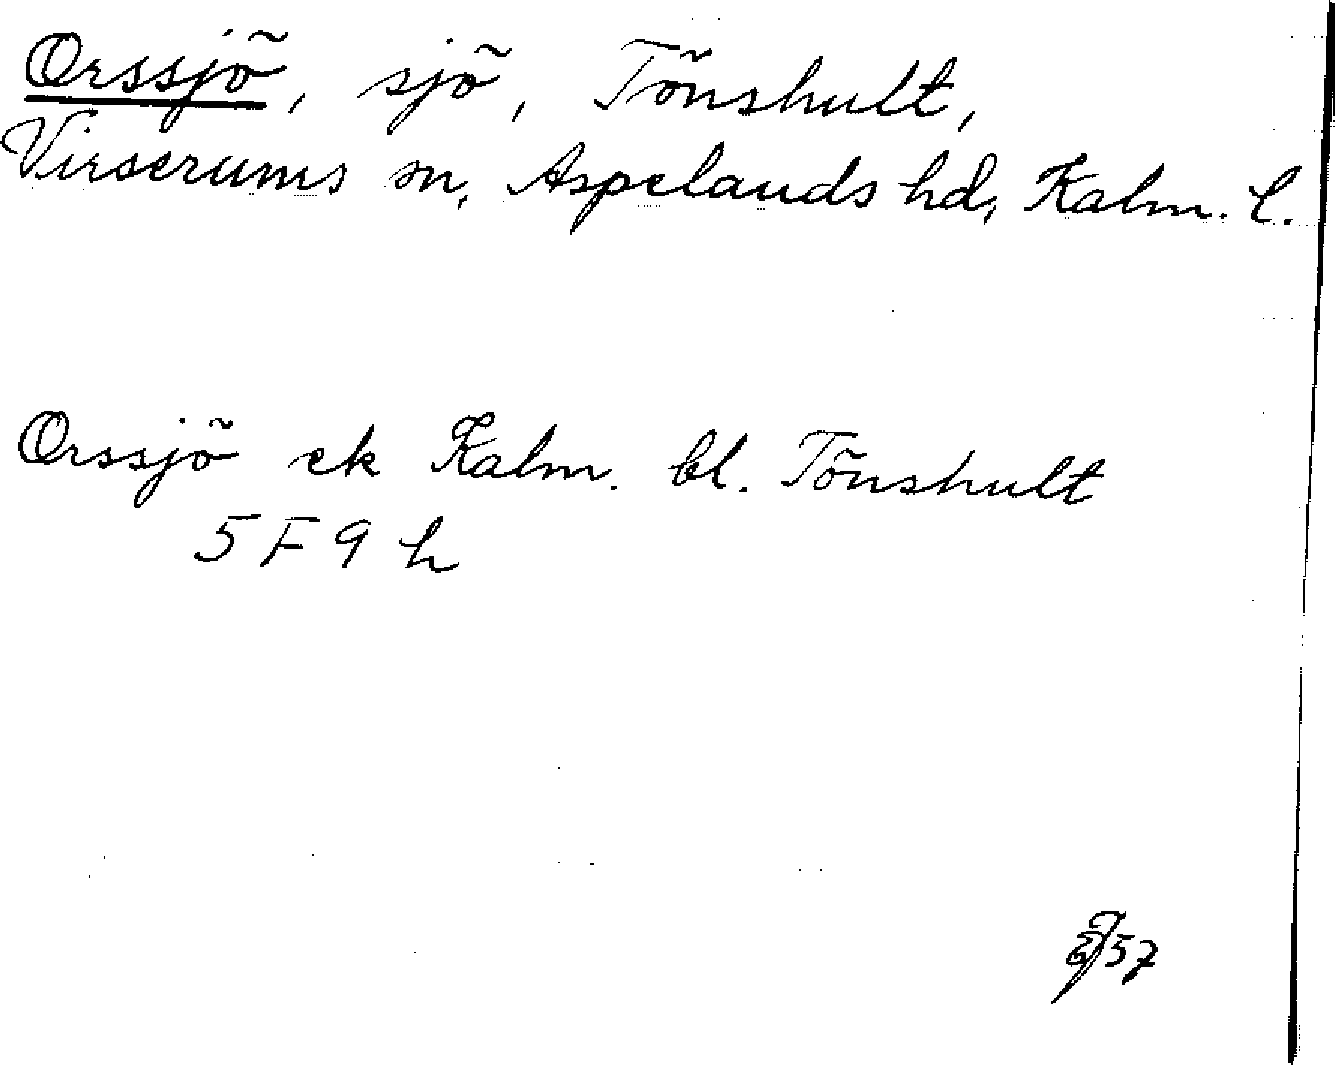 Orssjö, sjö, Tönshult,
Virserums sn, Aspelands hd, Kalm. l.
Orssjö ek Kalm. bl. Tönshult
5 F 9 h
57